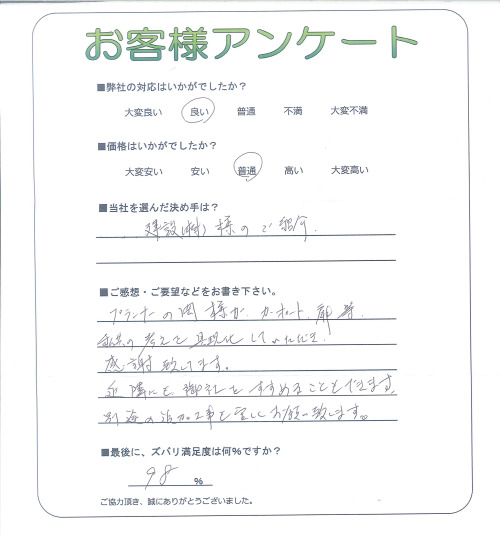 お客様アンケート
■弊社の対応はいかがでしたか？
大変良い 良い 普通 不満 大変不満
■価格はいかがでしたか？
大変安い 安い 普通 高い 大変高い
■当社を選んだ決め手は？
建設(株)様のご紹介.
■ご感想・ご要望などをお書き下さい。
プランナーの岡様が、カーポート、
私共の考えを具現化していただき、
感謝致してます。
近隣にも御社をすすめることもできます。
の追加工事も宜しくお願い致します。
■最後に、ズバリ満足度は何%ですか？
98 %
ご協力頂き、誠にありがとうございました。